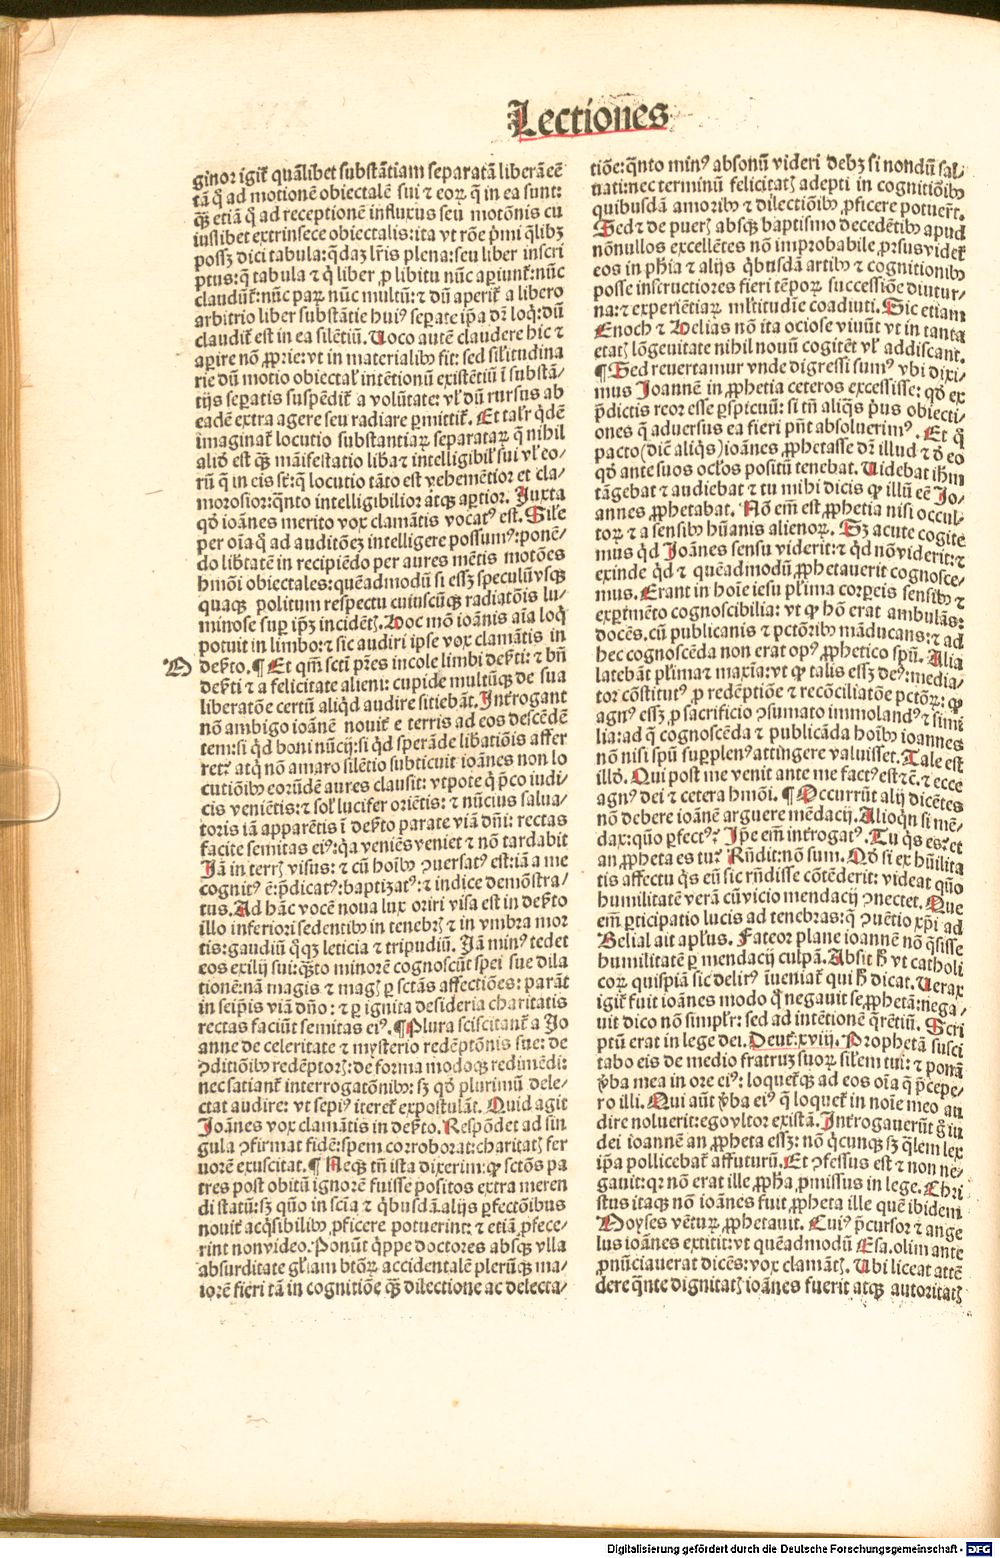 Lectiones
ginor igit᷑ quālibet substātiam separatā liberā eē
tā q̄ ad motionē obiectalē sui ⁊ eoꝝ q̄ in ea sunt:
qꝫ etiā q̄ ad receptionē influxus seu motōnis cu
iuslibet extrinsece obiectalis: ita vt rōe p̄mi q̄libꝫ
possꝫ dici tabula: q̄daꝫ lr̄is plena: seu liber inscri
ptus: q̄ tabula ⁊ q̄ liber ꝓ libitu nūc aꝑiunt᷑: nūc
claudūt᷑: nūc paꝝ nūc multū: ⁊ dū aperit᷑ a libero
arbitrio liber substātie huiꝰ seꝑate ip̄a dꝛ loq̄: dū
claudit᷑ est in ea silētiū. Uoco autē claudere hic ⁊
aꝑire nō ꝓprie: vt in materialibꝰ fit: sed sil̄itudina
rie dū motio obiectal̄ intētionū existētiū ī substā/
tijs seꝑatis suspēdit᷑ a volūtate: vl̄ dū rursus ab
eadē extra agere seu radiare ꝑmittit᷑. Et tal̄r q̄dē
imaginat᷑ locutio substantiaꝝ separataꝝ q̄ nihil
aliō est qꝫ māifestatio lib̄a ⁊ intelligibil̄ sui vl̄ eo/
rū q̄ in eis sē: q̄ locutio tāto est vehemētior et cla/
morosior: q̄nto intelligibilior atqꝫ aꝑtior. Juxta
qō ioānes merito vox clamātis vocatꝰ est. Sil̄e
per oīa q̄ ad auditōeꝫ intelligere possumꝰ: ponē/
do lib̄tatē in recipiēdo per aures mētis motōes
hmōi obiectales: quēadmodū si essꝫ speculū vsqꝫ
quaqꝫ politum respectu cuiuscūqꝫ radiatōis lu/
minose suꝑ ip̄ꝫ incidētꝭ. Hoc mō ioānis aīa loq̄
potuit in limbo: ⁊ sic audiri ipse vox clamātis in
deẜto. ¶ Et qm̄ sctī pr̄es incole limbi deẜti: ⁊ bn̄
deẜti ⁊ a felicitate alieni: cupide multūqꝫ de sua
liberatōe certū aliq̄d audire sitiebāt. Interrogant
nō ambigo ioānē nouit᷑ e terris ad eos descēdē
tem: si q̄d boni nūcij: si q̄d sperāde lib̄atiōis affer
ret? atq̄ nō amaro silētio subticuit ioānes non lo
cutiōibꝰ eorūdē aures clausit: vtpote q̄ p̄co iudi/
cis veniētis: ⁊ sol̄ lucifer oriētis: ⁊ nūcius salua/
toris iā apparētis ī deẜto parate viā dn̄i: rectas
facite semitas eiꝰ: q̄a veniēs veniet ⁊ nō tardabit
Jā in terrꝭ visus: ⁊ cū hoībꝰ ꝯuersatꝰ est: iā a me
cognitꝰ ē: p̄dicatꝰ: baptizatꝰ: ⁊ indice demōstra/
tus. Ad hāc vocē noua lux oriri visa est in deẜto
illo inferiori sedentibꝰ in tenebrꝭ ⁊ in vmbra mor
tis: gaudiū q̄qꝫ leticia ⁊ tripudiū. Jā minꝰ tedet
eos exilij sui: qꝫto minorē cognoscūt spei sue dila
tionē: nā magis ⁊ magꝭ ꝑ sctās affectiōes: parāt
in seip̄is viā dn̄o: ⁊ ꝑ ignita desideria charitatis
rectas faciūt semitas eiꝰ. ¶ Plura sciscitant᷑ a Jo
anne de celeritate ⁊ mysterio redēptōnis sue: de
ꝯditiōibꝰ redēptorꝭ: de forma modoqꝫ redimēdi:
nec satiant᷑ interrogatōnibꝰ: sꝫ qō plurimū dele/
ctat audire: vt sepiꝰ iteret᷑ expostulāt. Quid agit
Joānes vox clamātis in deẜto. Respōdet ad sin
gula ꝯfirmat fidē: spem corroborat: charitatꝭ fer
uorē exuscitat. ¶ Neqꝫ tn̄ ista dixerim: ꝙ sctōs pa
tres post obitū ignorē fuisse p̄positos extra meren
di statū: sꝫ quō in scīa ⁊ q̄busdā alijs ꝑfectōibus
nouit acq̄sibilibꝰ ꝓficere potuerint: ⁊ etiā ꝓfece/
rint non video. Ponūt q̄ppe doctores absqꝫ vlla
absurditate gl̄iam btōꝝ accidentalē plerūqꝫ ma/
iorē fieri tā in cognitiōe qꝫ dilectione ac delecta/
tiōe: q̄nto minꝰ absonū videri debꝫ si nondū sal/
uati: nec terminū felicitatꝭ adepti in cognitiōibꝰ
quibusdā amoribꝰ ⁊ dilectiōibꝰ ꝓficere potuer̄t.
Sed ⁊ de puerꝭ absqꝫ baptismo decedētibꝰ apud
nōnullos excellētes nō improbabile ꝓrsus videt᷑
eos in ph̄ia ⁊ alijs q̄busdā artibꝰ ⁊ cognitionibꝰ
posse instructiores fieri tēpoꝝ successiōe diutur/
na: ⁊ experiētiaꝝ ml̄titudie coadiuti. Sic etiam
Enoch ⁊ Helias nō ita ociose viuūt vt in tanta
etatꝭ lōgeuitate nihil nouū cogitēt vl̄ addiscant.
¶ Sed reuertamur vnde digressi sumꝰ vbi dixi/
mus Joannē in ꝓphetia ceteros excessisse: qō ex
p̄dictis reor esse ꝑspicuū: si tn̄ aliq̄s p̄us obiecti/
ones q̄ aduersus ea fieri pn̄t absoluerimꝰ. Et q̄
pacto (dicē aliq̄s) ioānes ꝓphetasse dꝛ illud ⁊ d̄ eo
qō ante suos oc̄los positū tenebat. Uidebat ih̄m
tāgebat ⁊ audiebat ⁊ tu mihi dicis ꝙ illū eē Jo/
annes ꝓphetabat. Nō em̄ est ꝓphetia nisi occul/
toꝝ ⁊ a sensibꝰ hūanis alienoꝝ. Sꝫ acute cogite
mus q̄d Joānes sensu viderit: ⁊ q̄d nō viderit: ⁊
exinde q̄d ⁊ quēadmodū ꝓphetauerit cognosce/
mus. Erant in hoīe iesu pl̄ima corꝑeis sensibꝰ ⁊
exꝑimēto cognoscibilia: vt ꝙ hō erat ambulās:
docēs, cū publicanis ⁊ pctōribꝰ māducans: ⁊ ad
hec cognoscēda non erat opꝰ ꝓphetico spū. Alia
latebāt pl̄ima ⁊ maxīa: vt ꝙ talis essꝫ deꝰ: media/
tor cōstitutꝰ ꝓ redēptiōe ⁊ recōciliatōe pctōꝝ: ꝙ
agnꝰ essꝫ ꝓ sacrificio ꝯsumato immolandꝰ ⁊ simi
lia: ad q̄ cognoscēda ⁊ publicāda hoībꝰ ioannes
nō nisi spū suꝑplenꝰ attingere valuisset. Tale est
illō. Qui post me venit ante me factꝰ est ⁊c. ⁊ ecce
agnꝰ dei ⁊ cetera hmōi. ¶ Occurrūt alij dicētes
nō debere ioānē arguere mēdacij. Alioq̄n si mē/
dax: quō ꝑfectꝰ? Ip̄e em̄ int̄rogatꝰ. Tu q̄s es? et
an ꝓpheta es tu? Rn̄dit: nō sum. Qō si ex hūilita
tis affectu q̄s eū sic rn̄disse cōtēderit: videat quō
humilitatē verā cū vicio mendacij ꝯnectet. Que
em̄ ꝑticipatio lucis ad tenebras: q̄ ꝯuētio xp̄i ad
Belial ait apl̄us. Fateor plane ioannē nō q̄sisse
humilitatē ꝑ mendacij culpā. Absit h̄ vt catholi
coꝝ quispiā sic delirꝰ īueniat᷑ qui h̄ dicat. Uerax
igit᷑ fuit ioānes modo q̄ negauit se ꝓphetā: nega/
uit dico nō simpl̄r: sed ad intētionē q̄rētiū. Scri
ptū erat in lege dei. Deut᷑. xviij. Prophetā susci
tabo eis de medio fratruꝫ suoꝝ sil̄em tui: ⁊ ponā
v̄ba mea in ore eiꝰ: loquet᷑qꝫ ad eos oīa q̄ p̄cepe/
ro illi. Qui aūt v̄ba eiꝰ q̄ loquet᷑ in noīe meo au
dire noluerit: ego vltor existā. Int̄rogauerūt g̊ iu
dei ioannē an ꝓpheta essꝫ: nō q̄cunqꝫ sꝫ q̄lem lex
ip̄a pollicebat᷑ affuturū. Et ꝯfessus est ⁊ non ne/
gauit: qꝛ nō erat ille ꝓph̄a ꝓmissus in lege. Chri
stus itaqꝫ nō ioānes fuit ꝓpheta ille quē ibidem
Moyses vētuꝝ ꝓphetauit. Cuiꝰ p̄cursor ⁊ ange
lus ioānes extitit: vt quēadmodū Esa. olim ante
ꝓnūciauerat dicēs: vox clamātꝭ. Ubi liceat attē
dere q̄nte dignitatꝭ ioānes fuerit atqꝫ autoritatꝭ
Digitalisierung gefördert durch die Deutsche Forschungsgemeinschaft - DFG